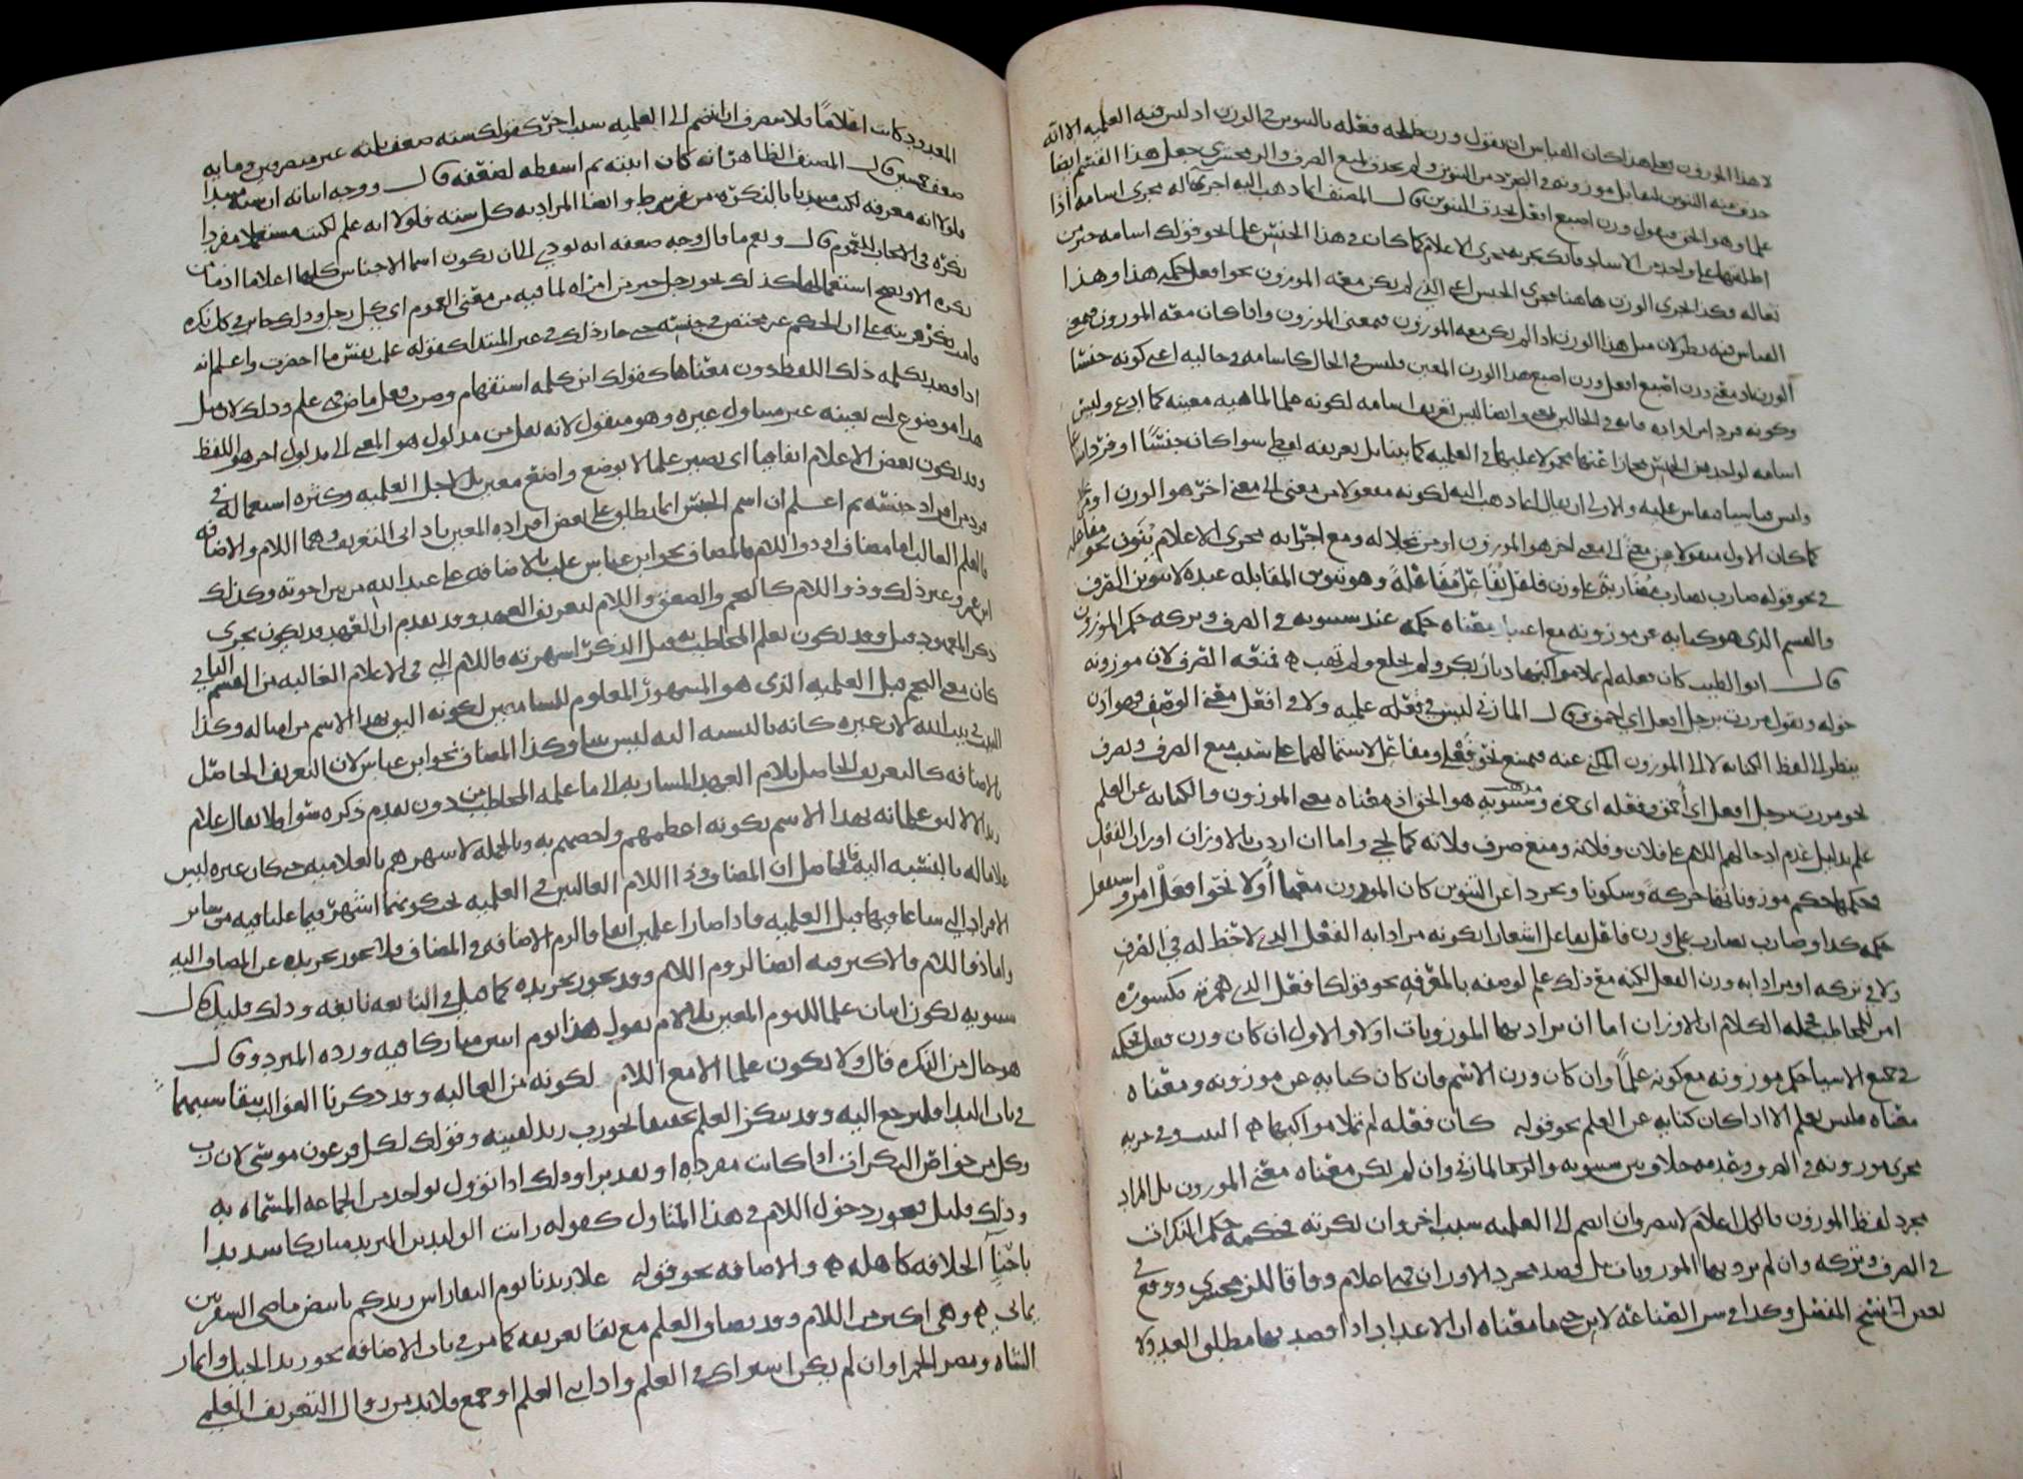 لا هذا الموزون فعلى هذا كان القياس ان يقول وزن طلحة فعلة بالتنوين في الوزن اذ ليس فيه العلمية الا انه
حذف منه التنوين ليقابل موزونه في التجرد من التنوين ولم يحذف لمنع الصرف والزمخشري جعل هذا القسم ايضا
علما وهو الحق فيقول وزن اصبع افعل بحذف التنوين قال المصنف انما ذهب اليه اجراء له مجرى اسامة اذا
اطلقتها على واحد من الاساد فانك تجريه مجرى الاعلام كما كان في هذا الجنس علما نحو قولك اسامة خير من
ثعالة فكذا اجري الوزن هاهنا مجرى الجنس اعني الذي لم يكن معه الموزون نحو افعل حكمه هذا وهذا
القياس فيه نظر لان مثل هذا الوزن اذا لم يكن معه الموزون فبمعنى الموزون واذا كان معه الموزون فبمعنى
الوزن اذ معنى وزن اصبع افعل وزن اصبع هذا الوزن المعين فليس في الحال كاسامة في حاليه اعني كونه جنسا
وكونه فردا من افراده فانه في الحالين وايضا ليس تعريف اسامة لكونه علما لماهية معينة كما ادعى وليس
اسامة لواحد من الجنس مجازا عنها محمولا عليها في العلمية كما بينا بل تعريفه لفظي سواء كان جنسا او فردا
وليس قياسيا فيقاس عليه والاولى ان يقال انما ذهب اليه لكونه منقولا من معنى الى معنى اخر هو الوزن
كما كان الاول منقولا من معنى الى معنى اخر هو الموزون او مرتجلا له ومع اجرائه مجرى الاعلام ينون نحو مفاعلة
في نحو قوله ضارب يضارب مضاربة على وزن فاعل يفاعل مفاعلة وهو تنوين المقابلة عنده لا تنوين الصرف
والقسم الذي هو كناية عن موزونه مع اعتبار معناه حكمه عند سيبويه في الصرف وتركه حكم الموزون
قال ابو الطيب كان فعلة لم تملا مواكبها ديار بكر ولم تخلع ولم تهب ه فمنعه الصرف لان موزونه
خولة وتقول مررت برجل افعل اي احمق وقال المازني ليس في فعلة علمية ولا في افعل معنى الوصف فهو اذن
ينظر الى لفظ الكناية لا الى الموزون المكني عنه فيمنع نحو فعلى ومفاعل لاشتمالهما على سبب منع الصرف ويصرف
نحو مررت برجل افعل اي احمق وفعلة اي حمزة ومذهب سيبويه هو الحق اذ معناه معنى الموزون والكناية عن العلم
علم بدليل عدم ادخالهم اللام على فلان وفلانة ومنع صرف فلانة كما يجي واما ان اردت بالاوزان اوزان الفعل
فحكمها حكم موزوناتها حركة وسكونا وتجردا عن التنوين كان الموزون معها اولا نحو افعل امر واستفعل
حكمه كذا وضارب يضارب على وزن فاعل يفاعل اشعارا بكونه مرادا به الفعل الذي لا حظ له في الصرف
ولا في تركه او مرادا به وزن الفعل لكنه مع ذلك علم لوصفه بالمعرفة نحو قولك افعل الذي همزته مكسورة
امر للمخاطب فجملة الكلام ان الاوزان اما ان يراد بها الموزونات اولا والاول ان كان وزن فعل فحكمه
في جميع الاشيا حكم موزونه مع كونه علما وان كان وزن الاسم فان كان كناية عن موزونه ومعناه
معناه فليس بعلم الا اذا كان كناية عن العلم نحو قوله كان فعلة لم تملا مواكبها ه البيت وفي
مجرى موزونه في الصرف وعدمه خلاف بين سيبويه والمازني وان لم يكن معناه معنى الموزون بل المراد
مجرد لفظ الموزون فالكل اعلام لا ينصرف ان انضم الى العلمية سبب اخر وان نكرته فحكمه حكم المنكرات
في الصرف وتركه وان لم يرد بها الموزونات بل قصد مجرد الاوزان فهي اعلام وفاقا للزمخشري ووقع في
بعض نسخ المفصل وكذا في سر الصناعة لابن جني ما معناه ان الاعداد اذا قصد بها مطلق العدد لا
المعدود كانت اعلاما فلا ينصرف ان انضم الى العلمية سبب اخر كقولك ستة ضعف ثلثة غير منصرفين ومائة
ضعف خمسين قال المصنف الظاهر انه كان اثبته ثم اسقطه لضعفه قال ووجه اثباته ان ستة مبتدا
فلولا انه معرفة لكنت مبتديا بالنكرة من غير شرط وايضا المراد به كل ستة فلولا انه علم لكنت مستعملا مفردا
نكرة في الايجاب للعموم قال ونعم ما قال وجه ضعفه انه يودي الى ان يكون اسما الاجناس كلها اعلاما اذ ما من
نكرة الا ويصح استعمالها كذلك نحو رجل خير من امراة لما فيه من معنى العموم اي كل رجل وذلك جار في كل نكرة
قامت قرينة على ان الحكم غير مختص في جنسه حتى جاز ذلك في غير المبتدا كقوله علمت نفس ما احضرت واعلم انه
اذا قصد بكلمة ذلك اللفظ دون معناها كقولك اين كلمة استفهام وضرب فعل ماض فهي علم وذلك لان مثل
هذا موضوع لشي بعينه غير متناول غيره وهو منقول لانه نقل من مدلول هو المعنى الى مدلول اخر هو اللفظ
وقد يكون بعض الاعلام اتفاقيا اي يصير علما لا بوضع واضع معين بل لاجل الغلبة وكثرة استعماله في
فرد من افراد جنسه ثم اعلم ان اسم الجنس انما يطلق على بعض افراده المعين باداتي التعريف وهما اللام والاضافة
فالعلم الغالب اما مضاف او ذو اللام فالمضاف نحو ابن عباس غلب بالاضافة على عبد الله من بين اخوته وكذلك
ابن عمر وغير ذلك وذو اللام كالنجم والصعق واللام لتعريف العهد وقد تقدم ان العهد قد يكون بجري
ذكر المعهود قبل وقد يكون بعلم المخاطب به قبل الذكر لشهرته فاللام التي في الاعلام الغالبة من القسم الثاني
كان معنى النجم قبل العلمية الذي هو المشهور المعلوم للسامعين لكونه اليق بهذا الاسم من امثاله وكذا
البيت في بيت الله لان غيره كانه بالنسبة اليه ليس بيتا وكذا المضاف نحو ابن عباس لان التعريف الحاصل
بالاضافة كالتعريف الحاصل بلام العهد المشار به الى ما علمه المخاطب من دون تقدم ذكره فلا يقال غلام
زيد الا لاليق غلمانه بهذا الاسم بكونه اعظمهم واخصهم به وبالجملة لاشهرهم بالغلامية حتى كان غيره ليس
غلاما له بالنسبة اليه فالحاصل ان المضاف وذا اللام الغالبين في العلمية يجب كونهما اشهر فيما غلبا فيه من سائر
الافراد التي شاعا فيها قبل العلمية فاذا صارا علمين اتفاقا لزم الاضافة في المضاف فلا يجوز تجريده عن المضاف اليه
واما ذو اللام فالاكثر فيه ايضا لزوم اللام وقد يجوز تجريده كما قيل في النابغة نابغة وذلك قليل قال
سيبويه يكون اثنان علما لليوم المعين بلا لام تقول هذا يوم اثنين مباركا فيه ورده المبرد وقال
هو حال من النكرة قال ولا يكون علما الا مع اللام لكونه من الغالبة وقد ذكرنا الغوالب
في باب النداء فليرجع اليه وقد ينكر العلم نحو رب زيد لقيته وقولك لكل فرعون موسى لان رب
وكل من خواص النكرات اذا كانت مفردة او تقديرا وذلك اذا تؤول بواحد من الجماعة المسماة به
وذلك قليل ويجوز دخول اللام في هذا المتناول كقوله رايت الوليد بن اليزيد مباركا شديدا
باحناء الخلافة كاهله ه والاضافة نحو قوله علا زيدنا يوم النقا راس زيدكم بابيض ماضي الشفرتين
يماني ه وهي اكثر من اللام وقد يضاف العلم مع بقا تعريفه كما مر في باب الاضافة نحو زيد الخيل وانمار
الشاه ومضر الحمراء وان لم يكن اشتراك في العلم واذا ثني العلم او جمع فلا بد من زوال التعريف العلمي